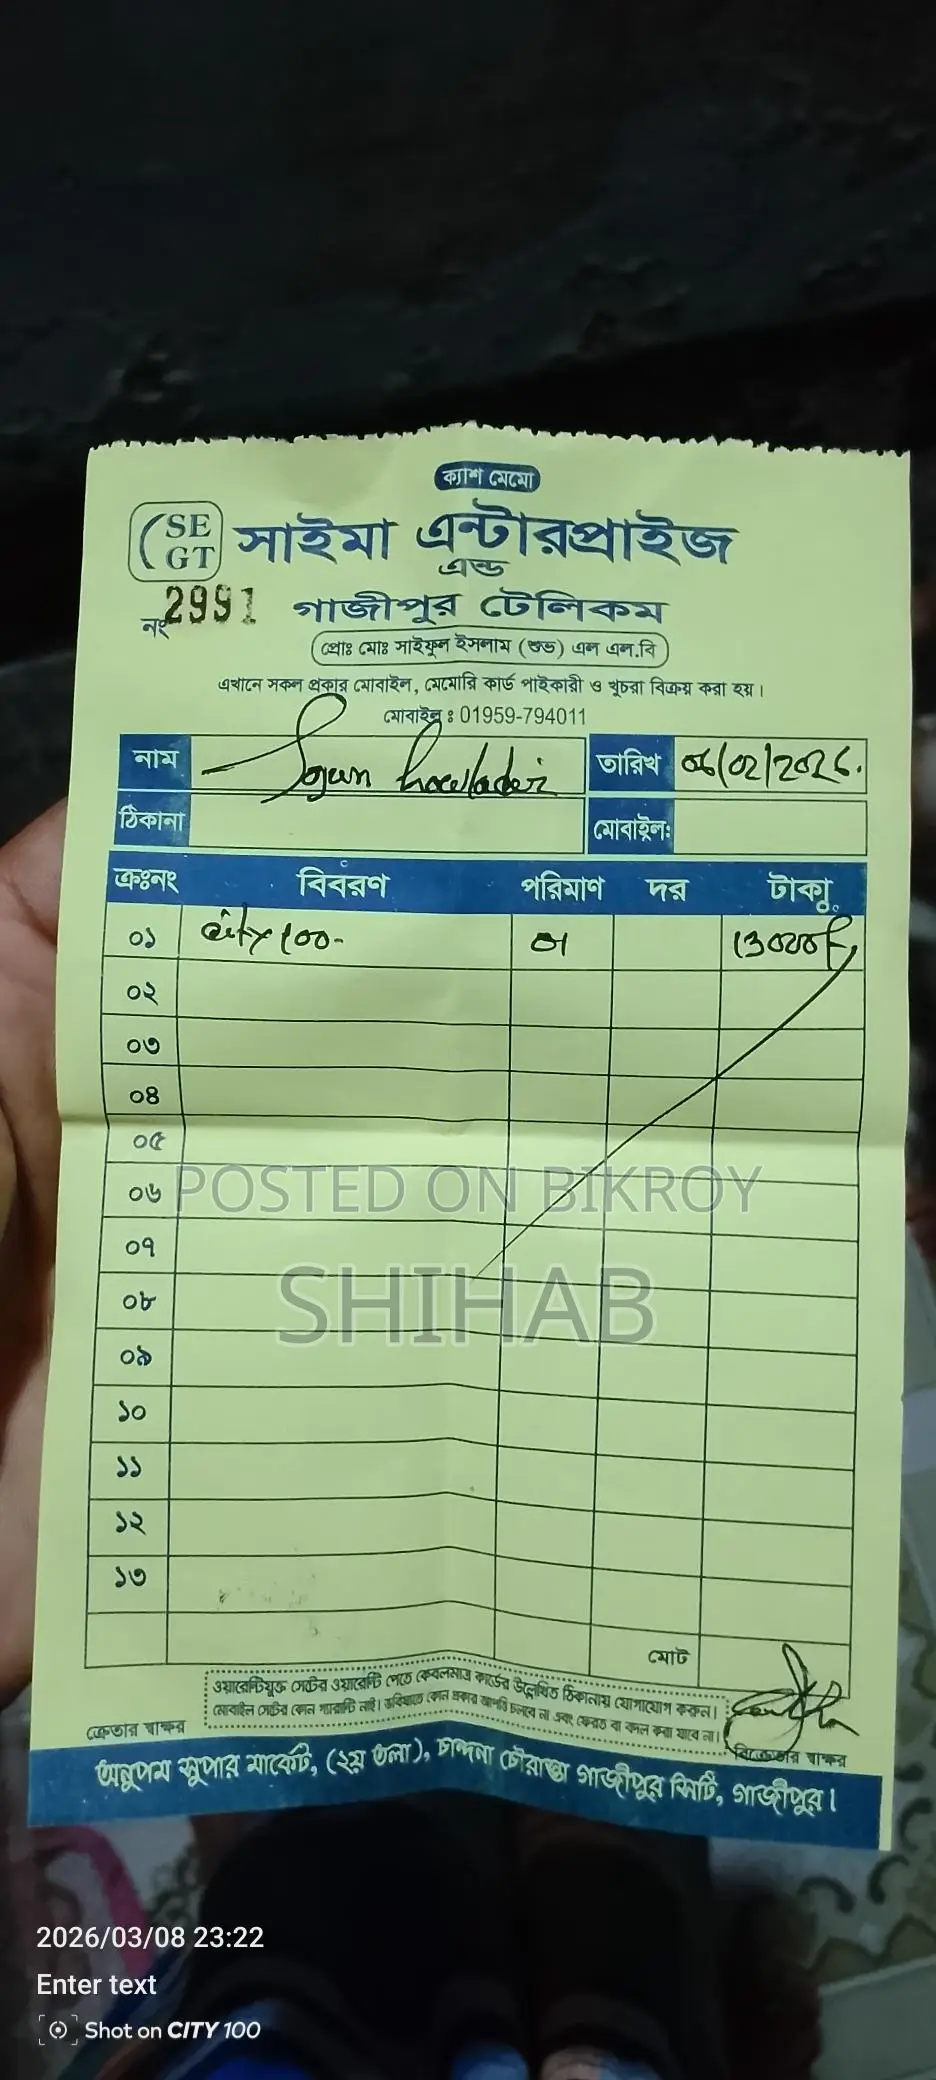 ক্যাশ মেমো
SE
GT
সাইমা এন্টারপ্রাইজ
এন্ড
নং 2991
গাজীপুর টেলিকম
প্রোঃ মোঃ সাইফুল ইসলাম (শুভ) এল এল.বি
এখানে সকল প্রকার মোবাইল, মেমোরি কার্ড পাইকারী ও খুচরা বিক্রয় করা হয়।
মোবাইল : 01959-794011
নাম Howlader তারিখ 06/02/2026.
ঠিকানা মোবাইল:
ক্রঃনং বিবরণ পরিমাণ দর টাকা
০১ City 100- 01 13000/-
০২
০৩
০৪
০৫
০৬
POSTED ON BIKROY
০৭
SHIHAB
০৮
০৯
১০
১১
১২
১৩
মোট
ওয়ারেন্টিযুক্ত সেটের ওয়ারেন্টি পেতে কেবলমাত্র কার্ডের উল্লেখিত ঠিকানায় যোগাযোগ করুন।
মোবাইল সেটের কোন গ্যারান্টি নাই। ভবিষ্যতে কোন প্রকার আপত্তি চলবে না এবং ফেরত বা বদল করা যাবে না।
ক্রেতার স্বাক্ষর বিক্রেতার স্বাক্ষর
অনুপম সুপার মার্কেট, (২য় তলা), চান্দনা চৌরাস্তা গাজীপুর সিটি, গাজীপুর।
2026/03/08 23:22
Enter text
Shot on CITY 100